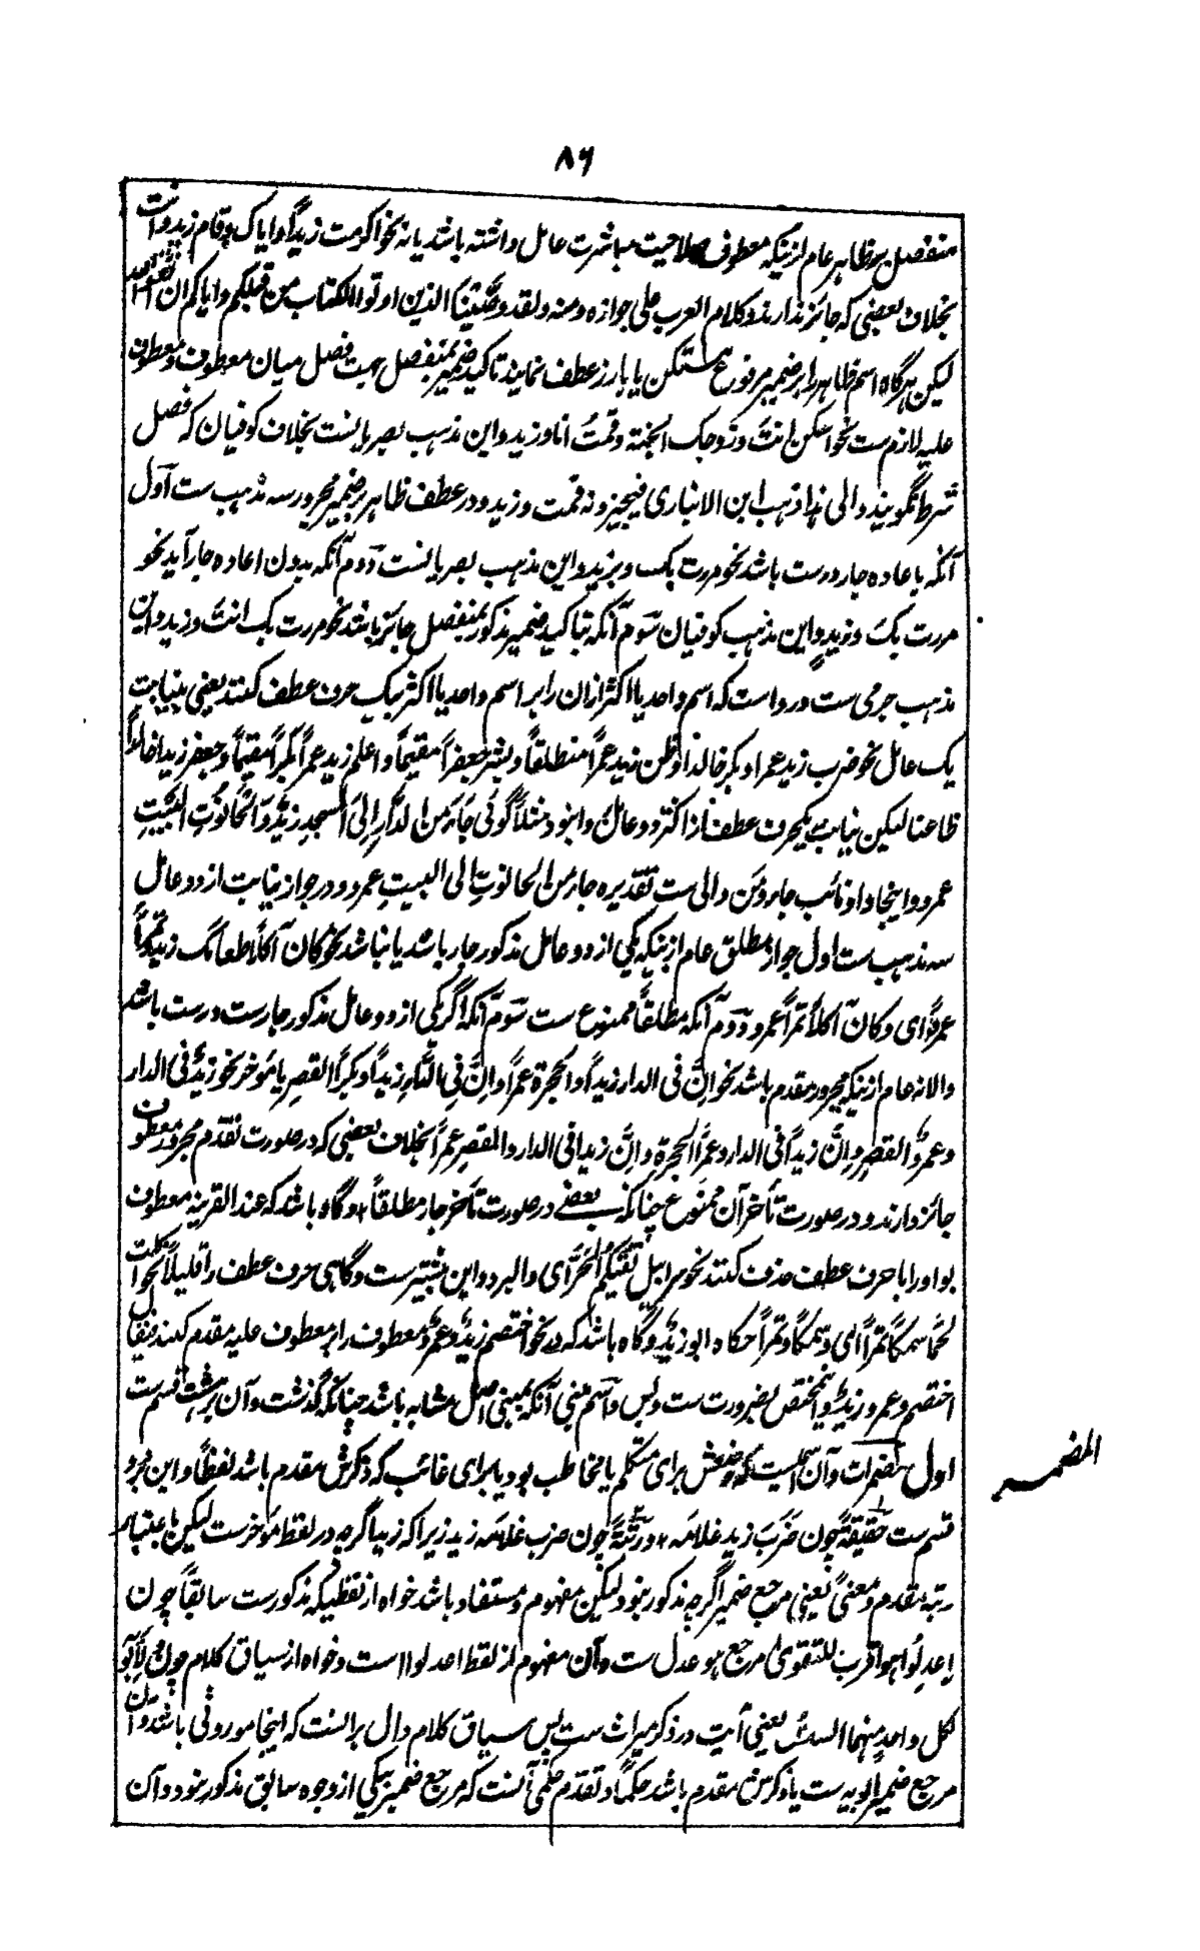 ۸۶
منفصل بر ظاهر عام ازینکه معطوف صلاحیت مباشرت عامل داشته باشد یا نه نحو اکرمت زیداً وایاک وقام زید وانت
بخلاف بعضی که جائز ندارند وکلام العرب علی جوازه ومنه ولقد وصّینا الذین اوتوا الکتاب من قبلکم وایاکم ان اتقوا الله
لیکن هرگاه اسم ظاهر را بر ضمیر مرفوع مستکن یا بارز عطف نمایند تاکید ضمیر بمنفصل بجهت فصل میان معطوف ومعطوف
علیه لازم ست نحو اسکن انت وزوجک الجنة وقمتُ انا وزید واین مذهب بصریانست بخلاف کوفیان که فصل
شرط نگویند والی هذا ذهب ابن الانباری فیجیزونه قمت وزید ودر عطف ظاهر بر ضمیر مجرور سه مذهب ست اول
آنکه باعاده جار درست باشد نحو مررت بک وبزید واین مذهب بصریانست دوم آنکه بدون اعاده جار آید نحو
مررت بکَ وزیدٍ واین مذهب کوفیان سوم آنکه بتاکید ضمیر مذکور بمنفصل جائز باشد نحو مررت بک انتَ وزید واین
مذهب جرمی ست وروا است که اسم واحد یا اکثر ازان را بر اسم واحد یا اکثر بیک حرف عطف کنند یعنی بنیابت
یک عامل نحو ضرب زید عمرا وبکر خالدا وظن زید عمرًا منطلقاً وبشر جعفراً مقیماً واعلم زید عمراً بکراً مقیماً وجعفر زیداً خالداً
ظاعنا لیکن نیابت یکحرف عطف از اکثر دو عامل روا نبود مثلاً گوئی جَاءَ مِنَ الدَّارِ اِلَی المسجدِ زیدٌ وَالحانوتِ البَیتِ
عمرو واینجا واو نائب جاء ومن والی ست تقدیره جاء من الحانوتِ الی البیتِ عمرو ودر جواز نیابت از دو عامل
سه مذهب ست اول جواز مطلق عام ازینکه یکی از دو عامل مذکور جار باشد یا نباشد نحو کان آکلاً طعامک زیدٌ وتمراً
عمروٌ ای وکان آکلاً تمراً عمرو دوم آنکه مطلقاً ممنوع ست سوم آنکه اگر یکی از دو عامل مذکور جارست درست باشد
والا نه عام ازینکه مجرور مقدم باشد نحو اِنَّ فی الدار زیداً والحجرة عمراً واِنَّ فی الدَّارِ زیداً وبکراً القصرِ یا مؤخر نحو زیدٌ فی الدار
وعمروٌ القصرِ واِنَّ زیداً فی الدار وعمراً الحجرة واِنَّ زیدا فی الدار والقصرِ عمراً بخلاف بعضی که در صورت تقدم مجرور معطوف
جائز دارند ودر صورت تأخر آن ممنوع چنانکه بعضے در صورت تأخر جار مطلقاً وگاه باشد که عند القرینه معطوف
بواو را با حرف عطف حذف کنند نحو سرابیل تقیکم الحَرَّ ای والبرد واین بیشترست وگاهی حرف عطف را قلیلاً نحو اکلت
لحمًا سمکاً تمراً ای وسمکاً وتمراً حکاه ابو زید وگاه باشد که در نحو اختصم زیدٌ وعمروٌ معطوف را بر معطوف علیه مقدم کنند فیقال
اختصم وعمرو زیدٌ واین مختص بضرورت ست وبس واسم مبنی آنکه بمبنی اصل مشابه باشد چنانکه گذشت وآن بر هشت قسم ست
اول مضمرات وآن اسمیست که وضعش برای متکلم یا مخاطب بود یا برای غائب که ذکرش مقدم باشد لفظاً واین بر دو
قسم ست حقیقةً چون ضَرَبَ زید غلامَه ورتبةً چون ضرب غلامَه زید زیرا که زید اگرچه در لفظ مؤخرست لیکن باعتبار
رتبه مقدم ومعنیً یعنی مرجع ضمیر اگرچه مذکور نبود لیکن مفهوم ومستفاد باشد خواه از لفظیکه مذکورست سابقاً چون
اِعدِلُوا هو اقرب للتقوی مرجع هو عدل ست وآن مفهوم از لفظ اعدلوا است وخواه از سیاق کلام چون ولِاَبَوَیه
لکل واحدٍ منهما السدس یعنی آیت در ذکر میراث ست پس سیاق کلام دال برانست که اینجا موروثی باشد وآن
مرجع ضمیر ابویه ست یا ذکرش مقدم باشد حکماً وتقدم حکمی آنست که مرجع ضمیر بیکی از وجوه سابق مذکور نبود وآن
المضمر